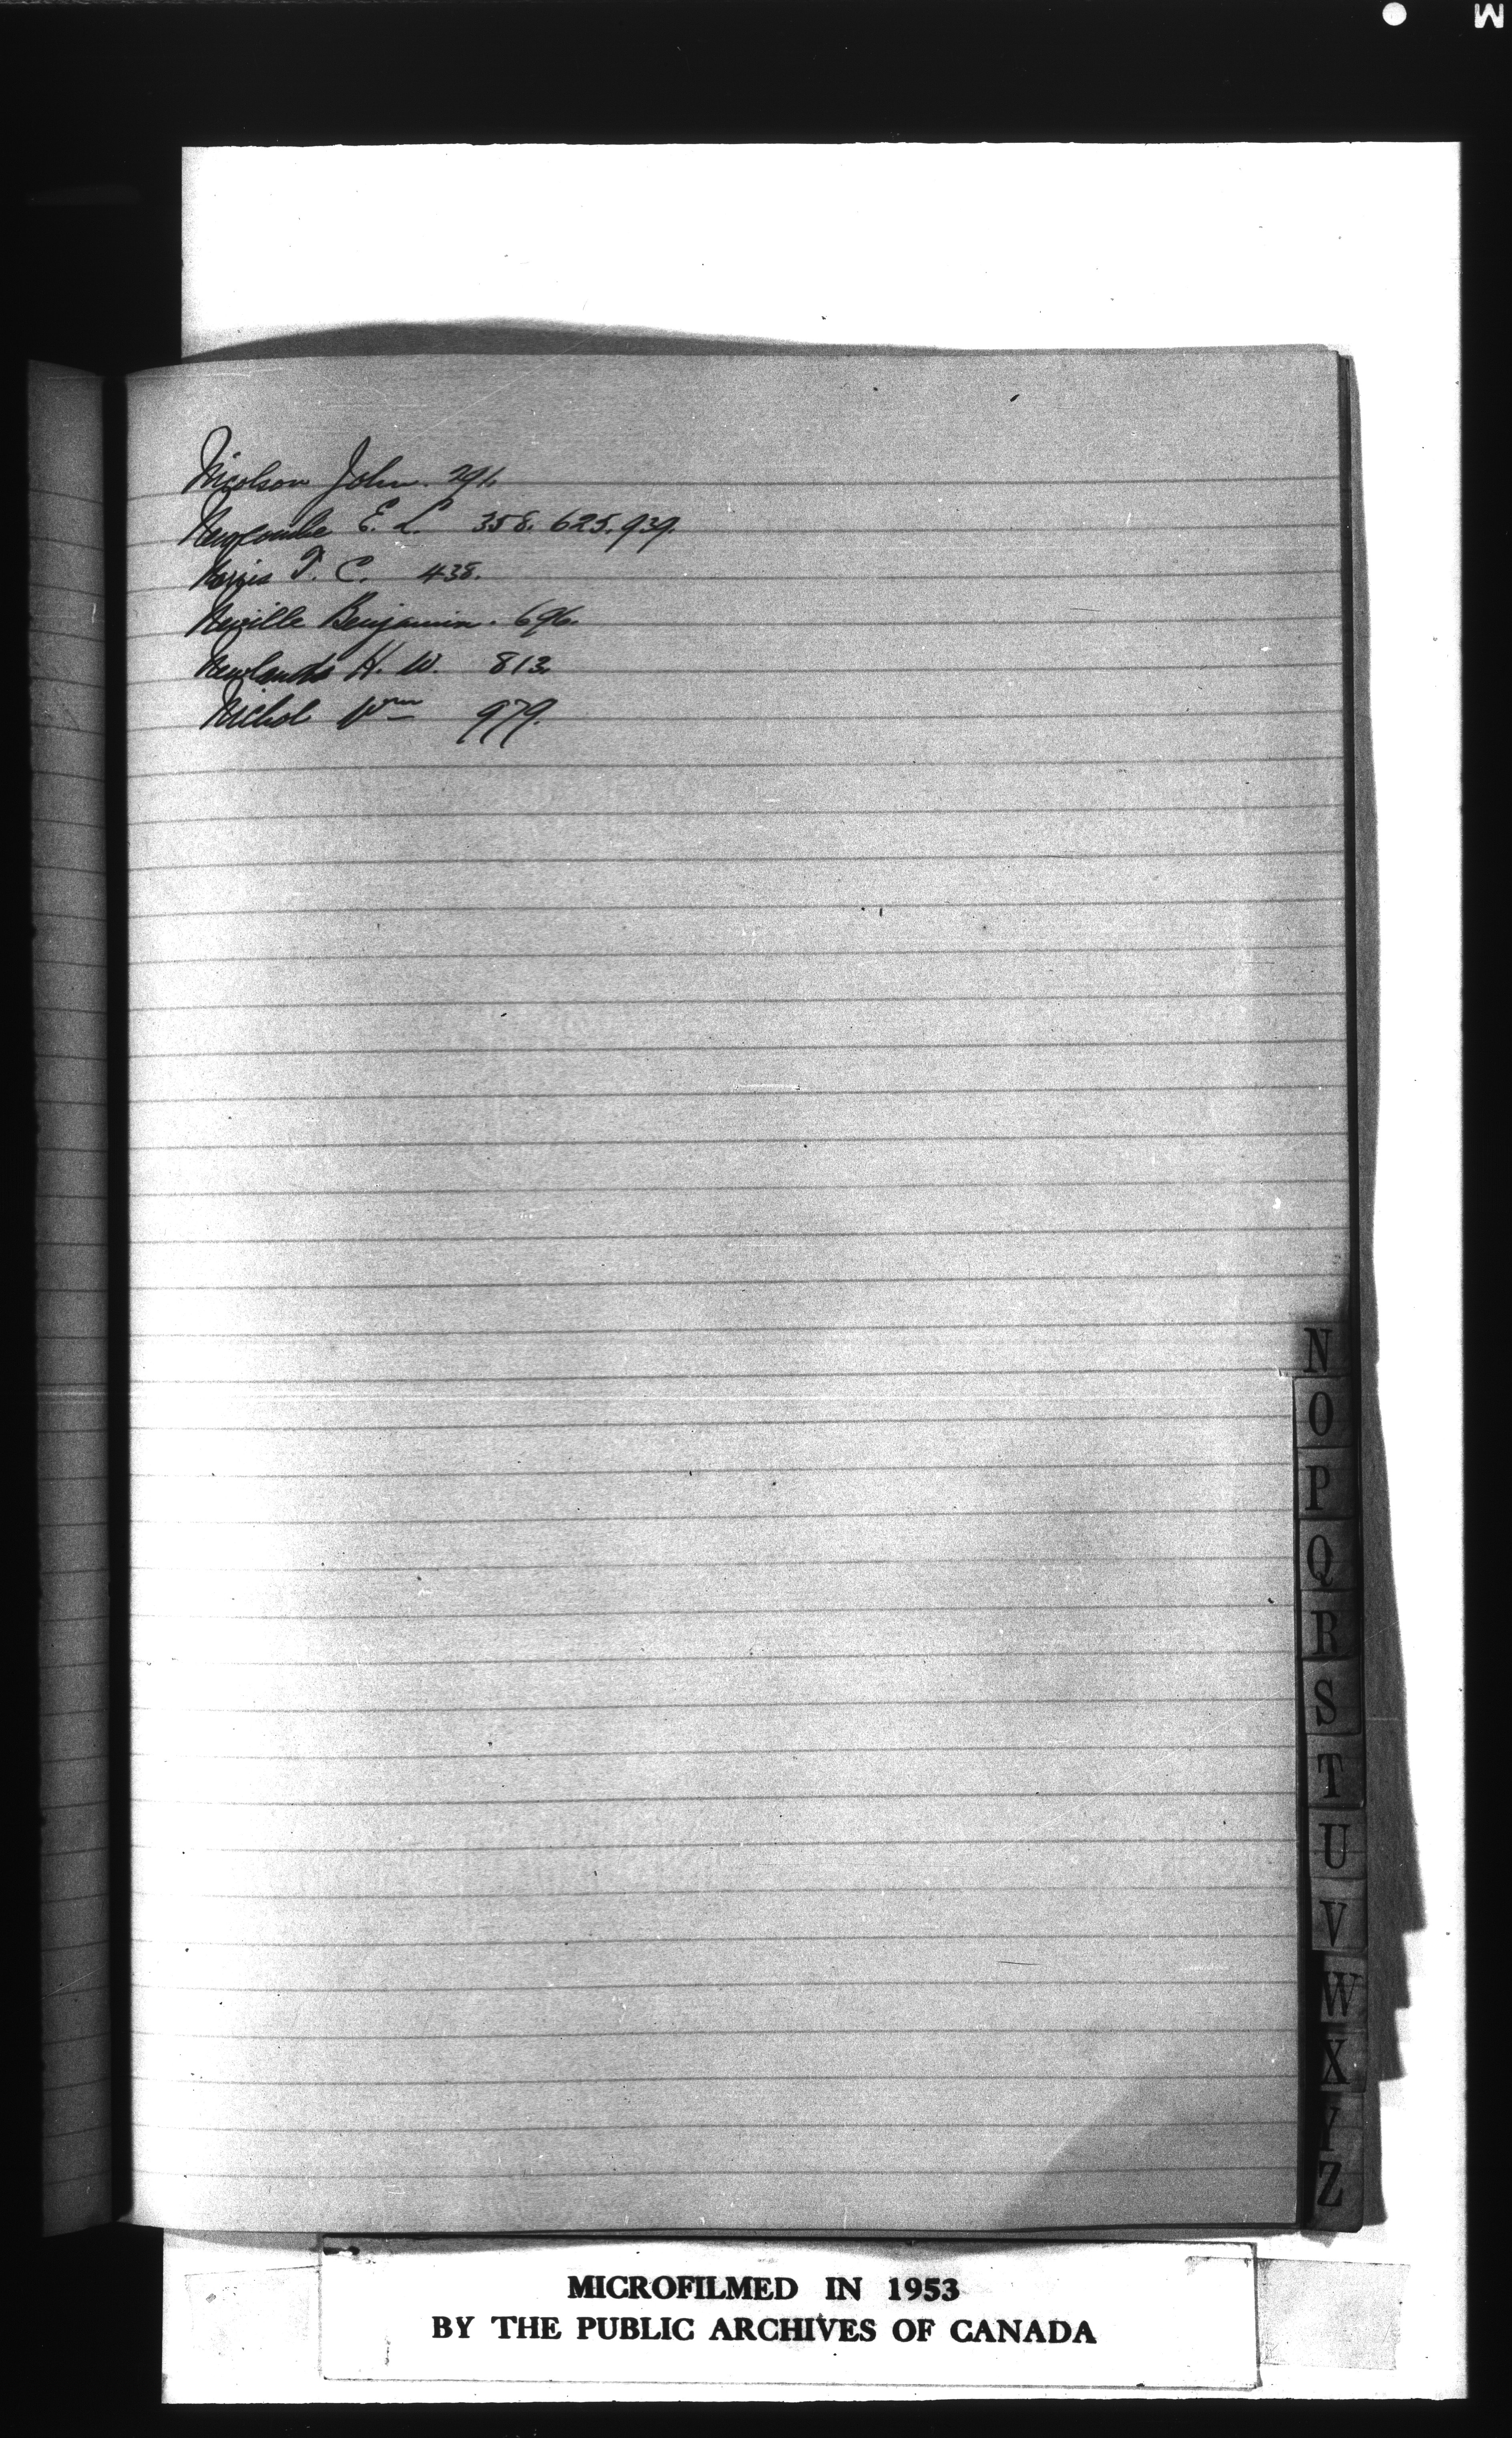 M
Nicolson John. 291.
Newcombe E. L. 358. 625. 939.
Norris T. C. 438.
Neville Benjamin. 696.
Newlands H. W. 813.
Nichol Wm 979.
N
O
P
Q
R
S
T
U
V
W
X
Y
Z
MICROFILMED IN 1953
BY THE PUBLIC ARCHIVES OF CANADA